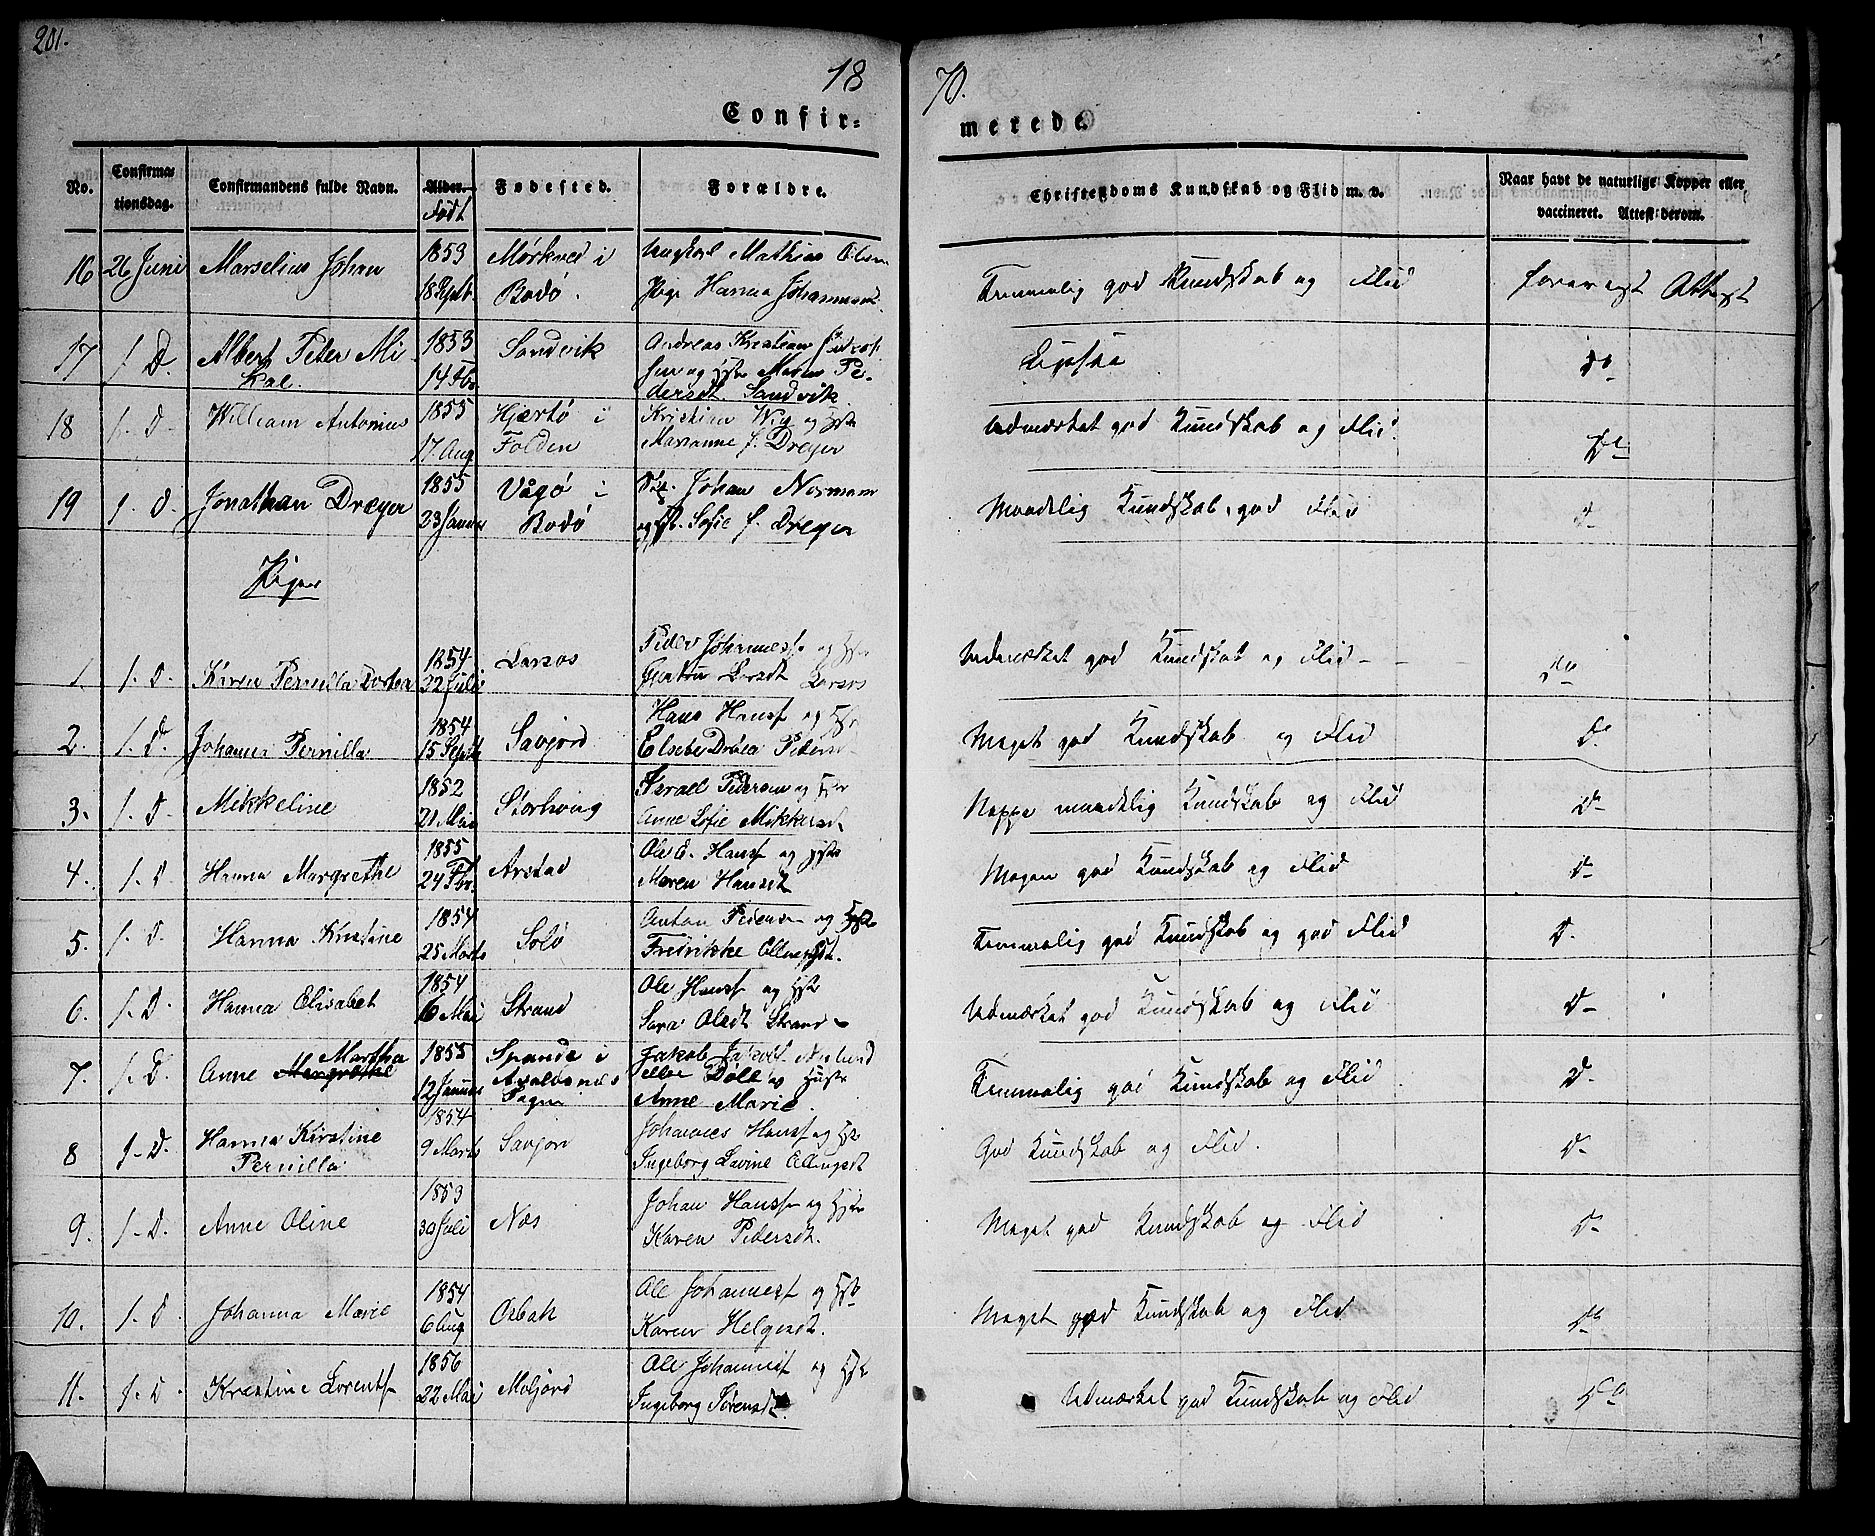 201.
18 70.
Confir- merede
No. Confirma- tionsdag. Confirmandens fulde Navn. Alder. Født Fødested. Forældre. Christendoms Kundskab og Flid m. v. Naar havt de naturlige Kopper eller vaccineret. Attest derom.
16 26 Juni Marselius Johan 1853 18 Septb. Mørkved i Bodø. Ungkarl Mathias Olsen Pige Hanna Johannesd. Temmelig god Kundskab og Flid forevist Attest
17 s. D. Albert Peter Mikal. 1853 14 Fbr Sandvik Andreas Kristian Pedersen og Hst Maren Pedersdt Sandvik Ligesaa Do
18 s. D. William Antonius 1855 17 Aug Hjærtø i Folden Kristian Wig og Hst Marianne f. Dreyer Udmærket god Kundskab og Flid. Do
19 s. D. Jonathan Dreyer 1855 23 Januar Vågø i Bodø Johan Normann og Hst. Sofie f. Dreyer Maadelig Kundskab, god Flid D-
Piger
1. s. D. Karen Pernilla Dortea 1854 22 Juli Larsos Peder Johanness og Hst Gjertru Larsdt Larsos Udmærket god Kundskab og Flid - Do
2. s. D. Johanna Pernilla 1854 15 Septb Savjord Hans Hanss og Hst Elsebe Dortea Pedersdt Meget god Kundskab og Flid Do
3. s. D. Mikkeline 1852 21 Mai Storhoug Israel Pedersen og Hst Anne Sofie Mikkelsdt Neppe maadelig Kundskab og Flid D-
4. s. D. Hanna Margrethe 1855 24 Fbr. Arstad Ole E. Hanss og Hst Maren Hansdt Megen god Kundskab og Flid D-
5. s. D. Hanna Kristine 1854 25 Marts Solø Anton Pedersen og Hst Fredrikke Ellingsdt. Temmelig god Kundskab og god Flid D.
6. s. D. Hanna Elisabet 1854 16 Mai Strand Ole Hanss og Hst Sara Olsdt Strand Udmærket god Kundskab og Flid D-
7. s. D. Anne Margrethe Martha 1855 12 Januar Spande i Axeldsnes Sogn Jakob Jakobs Nislund eller Døll og Hustr Anne Marie. Temmelig god Kundskab og Flid D.
8 s. D. Hanna Kirstine Pernilla 1854 9 Marts Savjord Johannes Hanss og Hst Ingeborg Lovine Ellingsdt God Kundskab og Flid. D-
9. s. D. Anne Oline 1853 30 Juli Næs Johan Hanss og Hst Karen Pedersdt. Meget god Kundskab og Flid D-
10. s. D. Johanna Marie 1854 6 Aug Osbak Ole Johanness og Hst Karen Helgesdt. Meget god Kundskab og Flid Do
11. s. D. Kristine Lorents 1856 22 Mai Moljord Ole Johanness og Hst Ingeborg Sørensdt. Udmærket god Kundskab og Flid Do